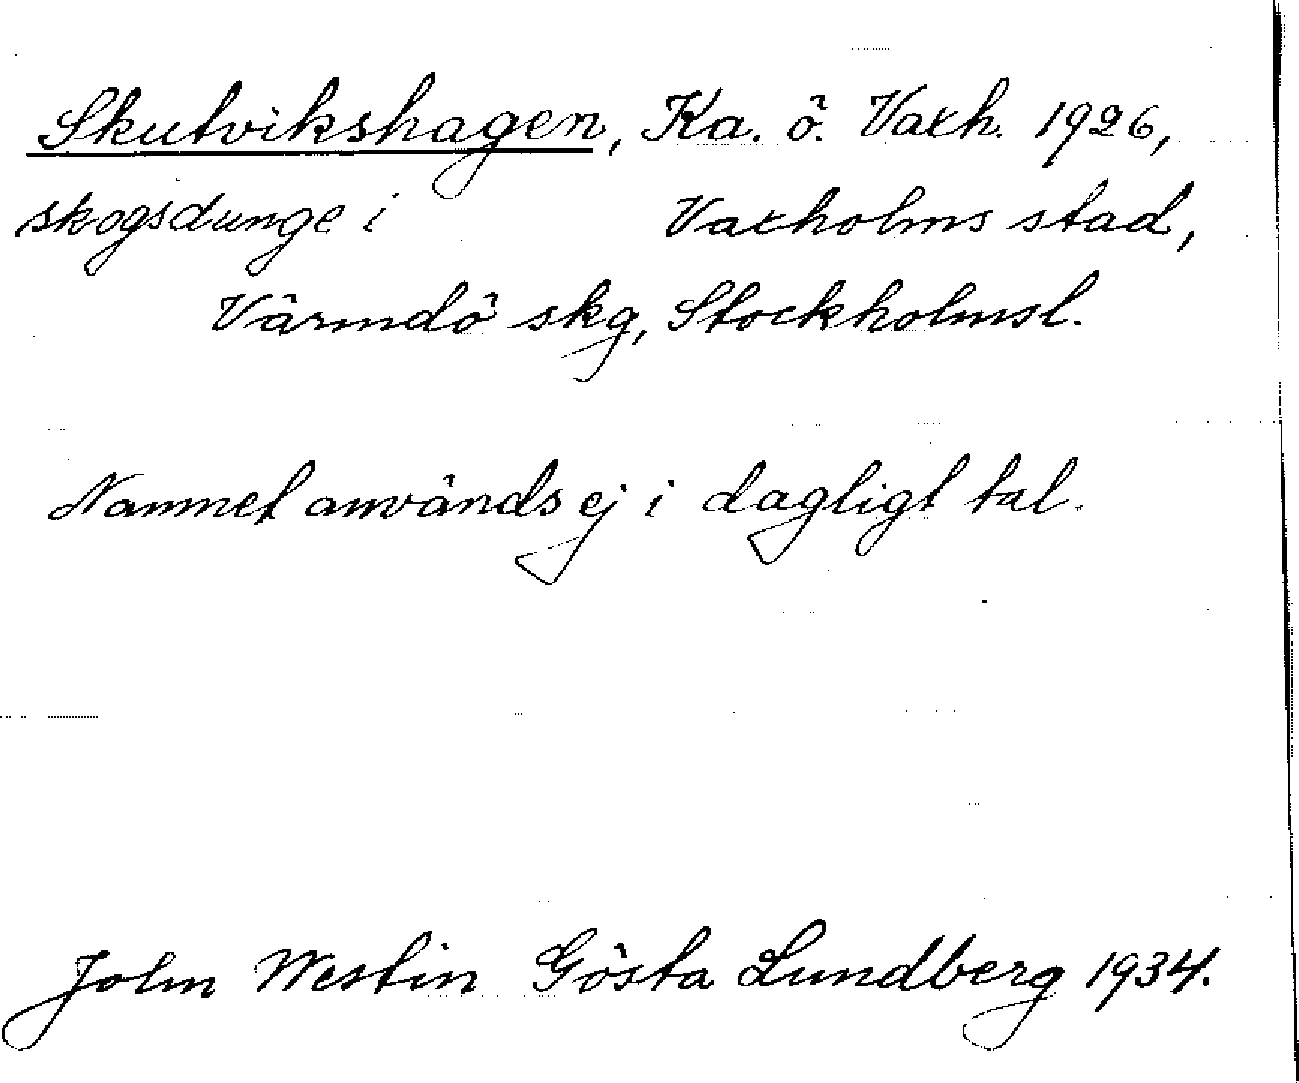 Skutvikshagen, Ka. ö. Vaxh. 1926,
skogsdunge i Vaxholms stad,
Värmdö skg, Stockholmsl.
Namnet används ej i dagligt tal.
John Westin Gösta Lundberg 1934.